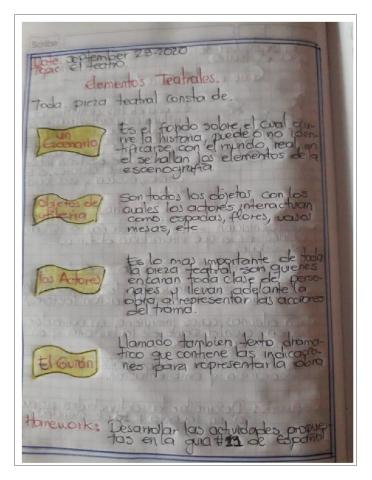 Scribe
Date: September 23-2020
Topic: El teatro.
Elementos Teatrales.
Toda pieza teatral consta de.
Un
Escenario
Es el fondo sobre el cual ocu-
rre la historia, puede o no iden-
tificarse con el mundo real, en
el se hallan los elementos de la
escenografia
Objetos de
utileria
Son todos los objetos con los
cuales los actores interactuan
como espadas, flores, vasos
mesas, etc
Los Actores
Es lo mas importante de toda
la pieza teatral, son quienes
encaran toda clase de perso-
najes y llevan adelante la
obra, al representar las acciones
del trama.
El Guión
Llamado tambien texto drama-
tico que contiene las indicacio-
nes para representar la obra
Homework: Desarrollar las actividades propues-
tas en la guia #11 de español